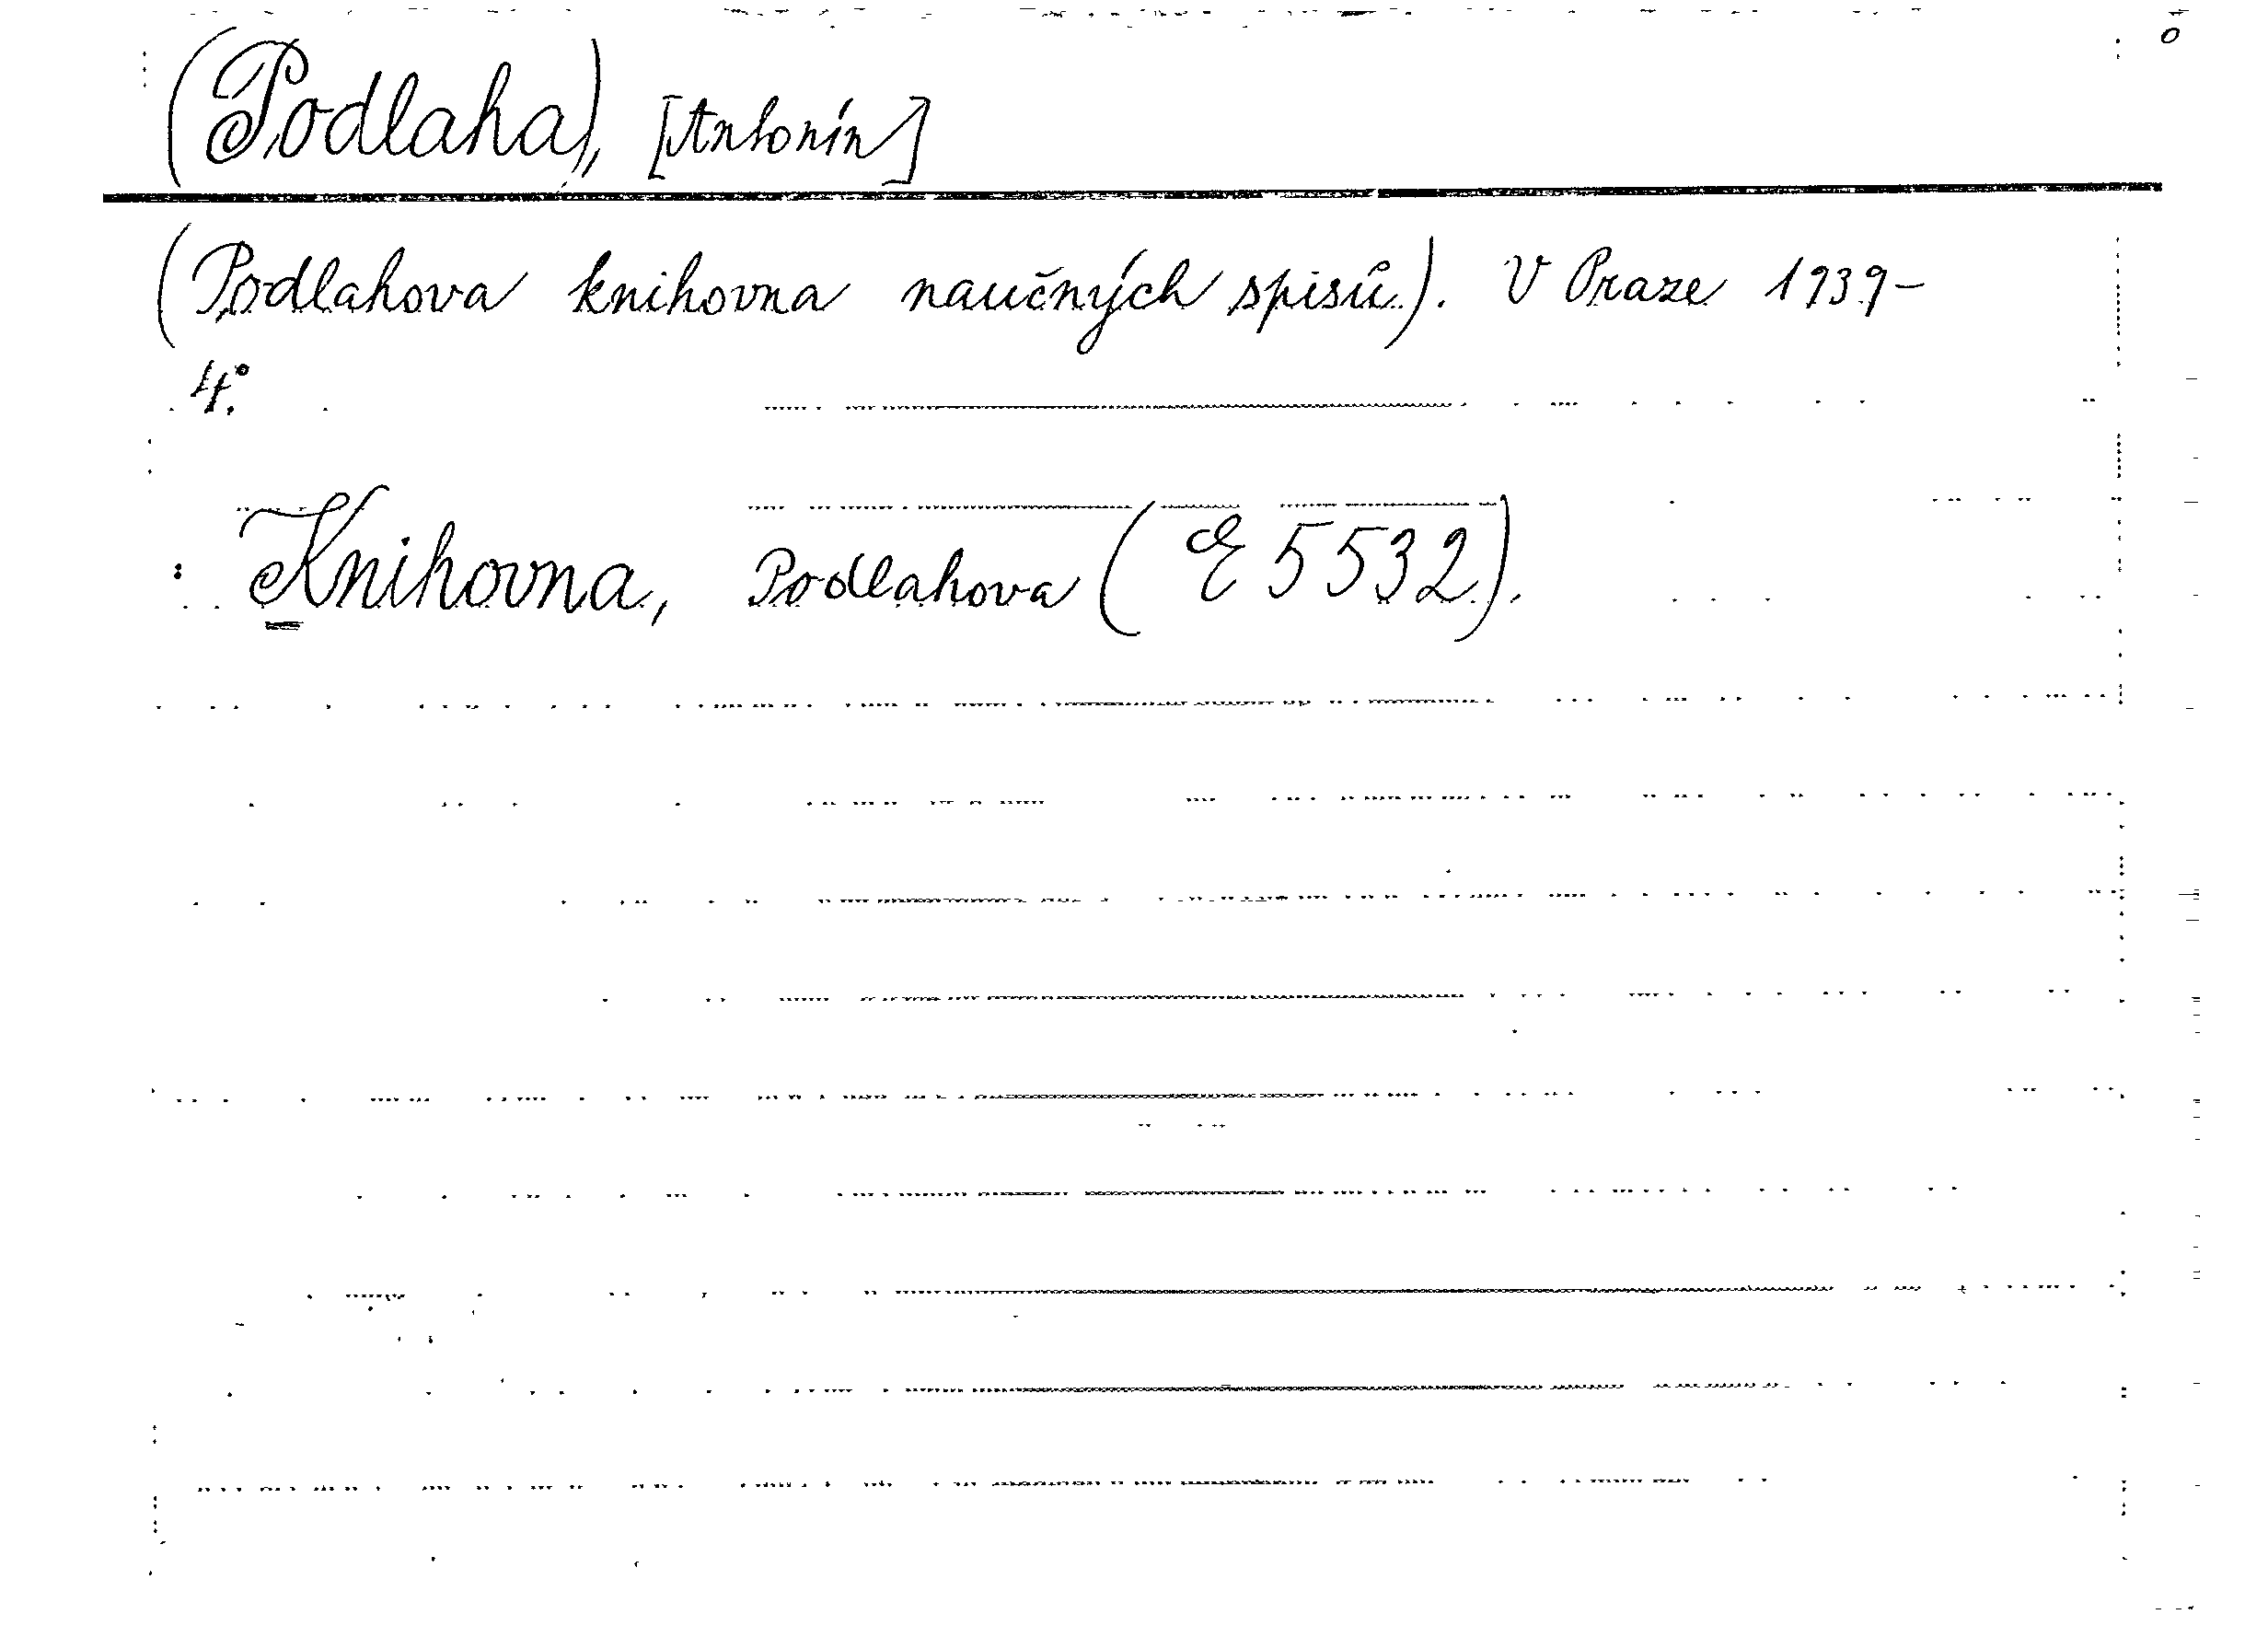 (Podlaha), [Antonín]
(Podlahova knihovna naučných spisů). V Praze 1939-
4°.
: Knihovna, Podlahova (E 5532).